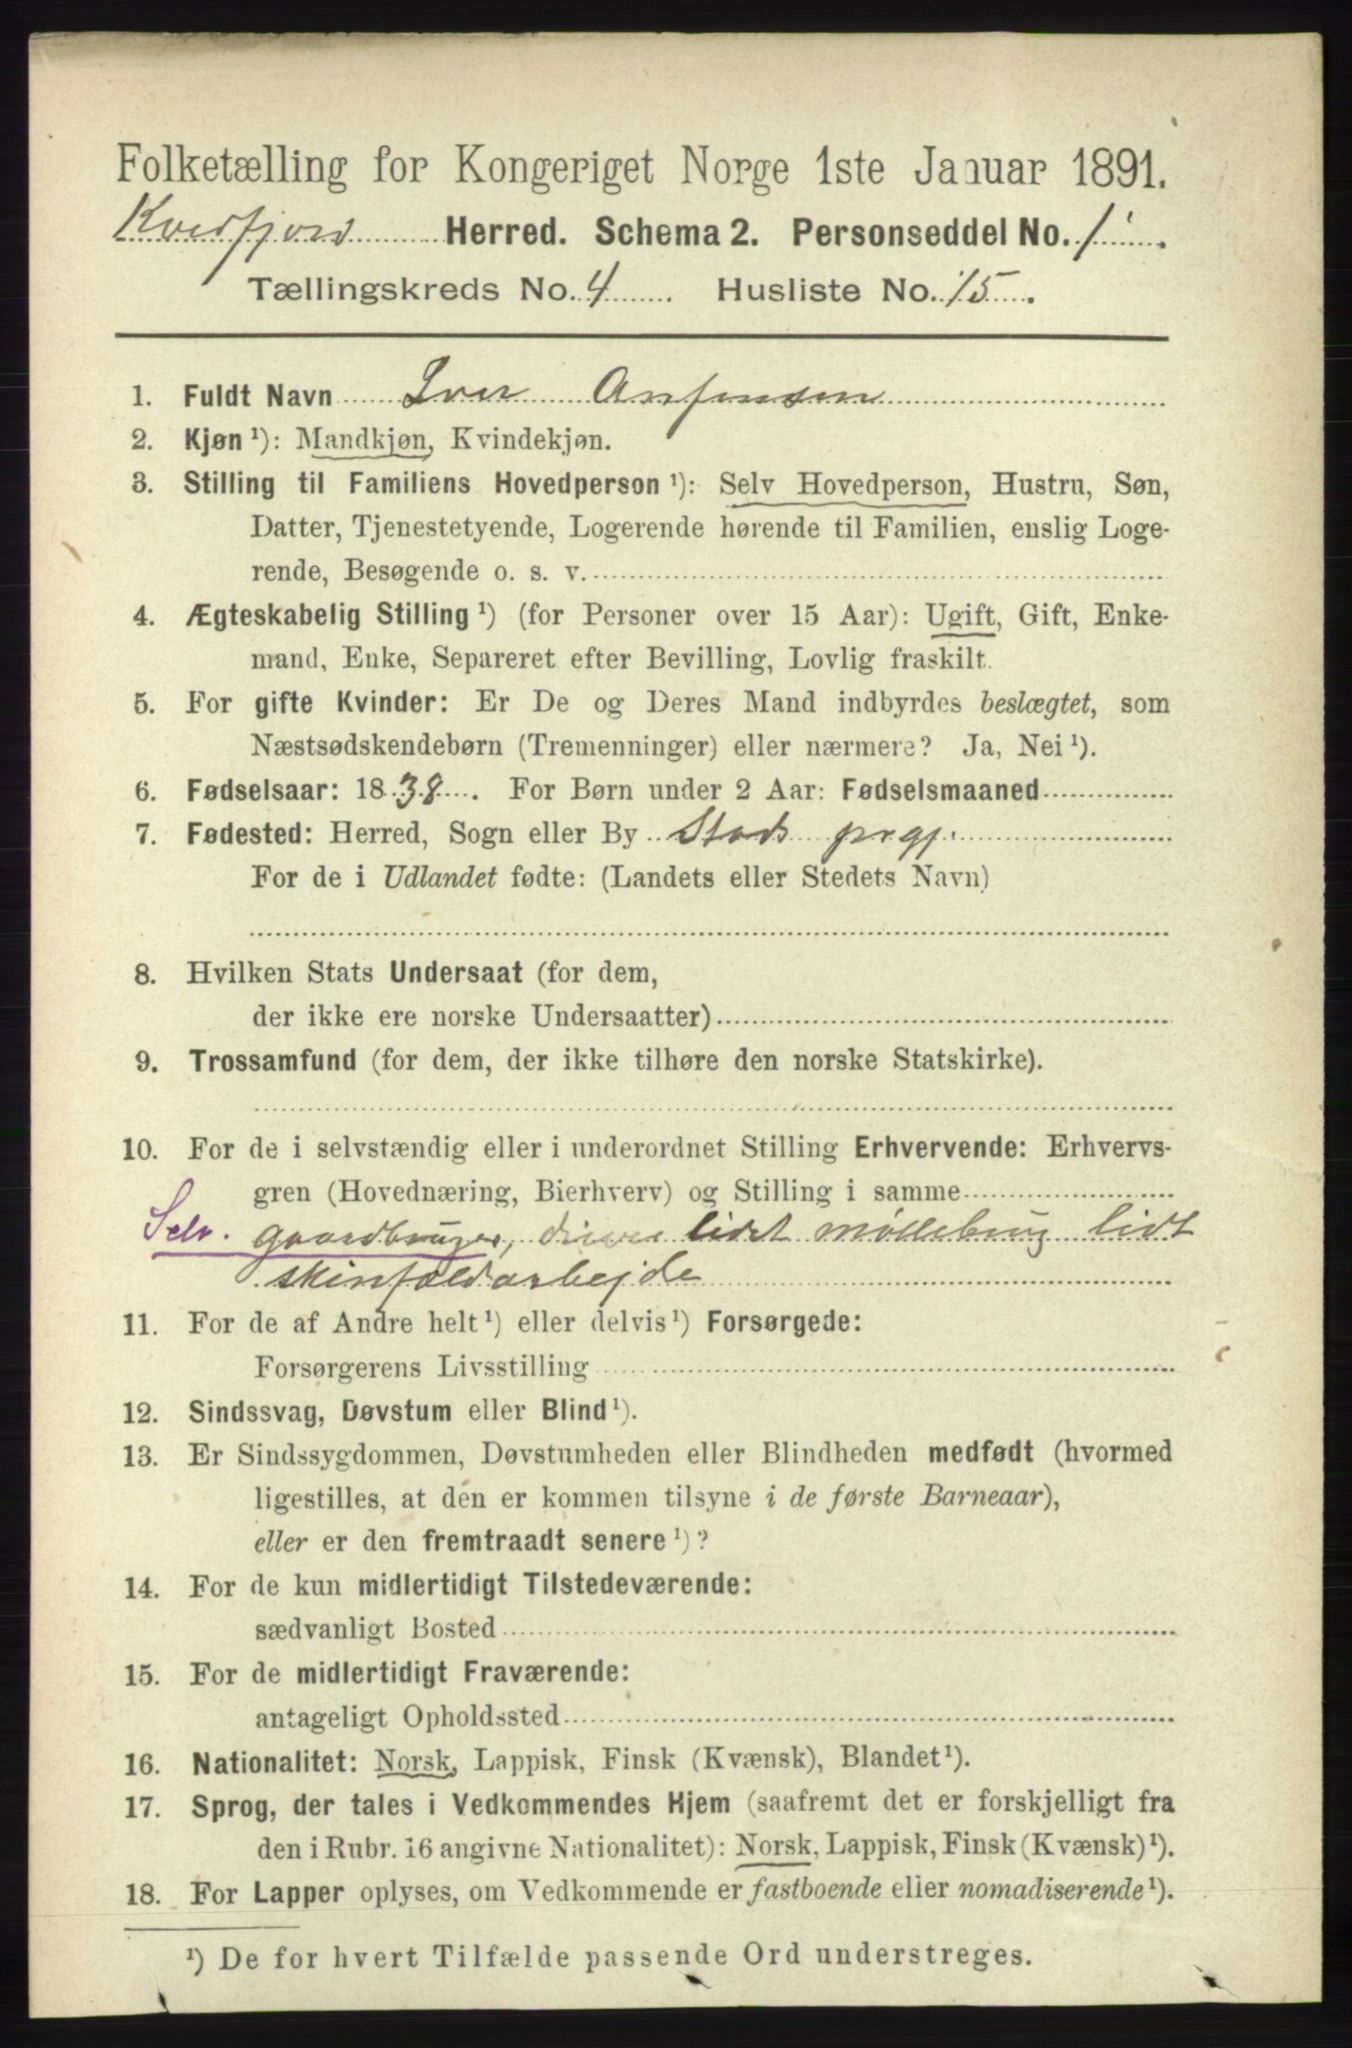 Folketælling for Kongeriget Norge 1ste Januar 1891.
Kvedfjord Herred. Schema 2. Personseddel No. 1.
Tællingskreds No. 4 Husliste No. 15.
1. Fuldt Navn Iver Anfensen
2. Kjøn ¹): Mandkjøn, Kvindekjøn.
3. Stilling til Familiens Hovedperson ¹): Selv Hovedperson, Hustru, Søn,
Datter, Tjenestetyende, Logerende hørende til Familien, enslig Loge-
rende, Besøgende o. s. v.
4. Ægteskabelig Stilling ¹) (for Personer over 15 Aar): Ugift, Gift, Enke-
mand, Enke, Separeret efter Bevilling, Lovlig fraskilt.
5. For gifte Kvinder: Er De og Deres Mand indbyrdes beslægtet, som
Næstsødskendebørn (Tremenninger) eller nærmere? Ja, Nei ¹).
6. Fødselsaar: 1838. For Børn under 2 Aar: Fødselsmaaned
7. Fødested: Herred, Sogn eller By Stods prgj.
For de i Udlandet fødte: (Landets eller Stedets Navn)
8. Hvilken Stats Undersaat (for dem,
der ikke ere norske Undersaatter)
9. Trossamfund (for dem, der ikke tilhøre den norske Statskirke).
10. For de i selvstændig eller i underordnet Stilling Erhvervende: Erhvervs-
gren (Hovednæring, Bierhverv) og Stilling i samme
Selv. gaardbruger, driver lidet møllebrug lidt
skinfeldarbejde
11. For de af Andre helt ¹) eller delvis ¹) Forsørgede:
Forsørgerens Livsstilling
12. Sindssvag, Døvstum eller Blind ¹).
13. Er Sindssygdommen, Døvstumheden eller Blindheden medfødt (hvormed
ligestilles, at den er kommen tilsyne i de første Barneaar),
eller er den fremtraadt senere ¹)?
14. For de kun midlertidigt Tilstedeværende:
sædvanligt Bosted
15. For de midlertidigt Fraværende:
antageligt Opholdssted
16. Nationalitet: Norsk, Lappisk, Finsk (Kvænsk), Blandet ¹).
17. Sprog, der tales i Vedkommendes Hjem (saafremt det er forskjelligt fra
den i Rubr. 16 angivne Nationalitet): Norsk, Lappisk, Finsk (Kvænsk) ¹).
18. For Lapper oplyses, om Vedkommende er fastboende eller nomadiserende ¹).
¹) De for hvert Tilfælde passende Ord understreges.